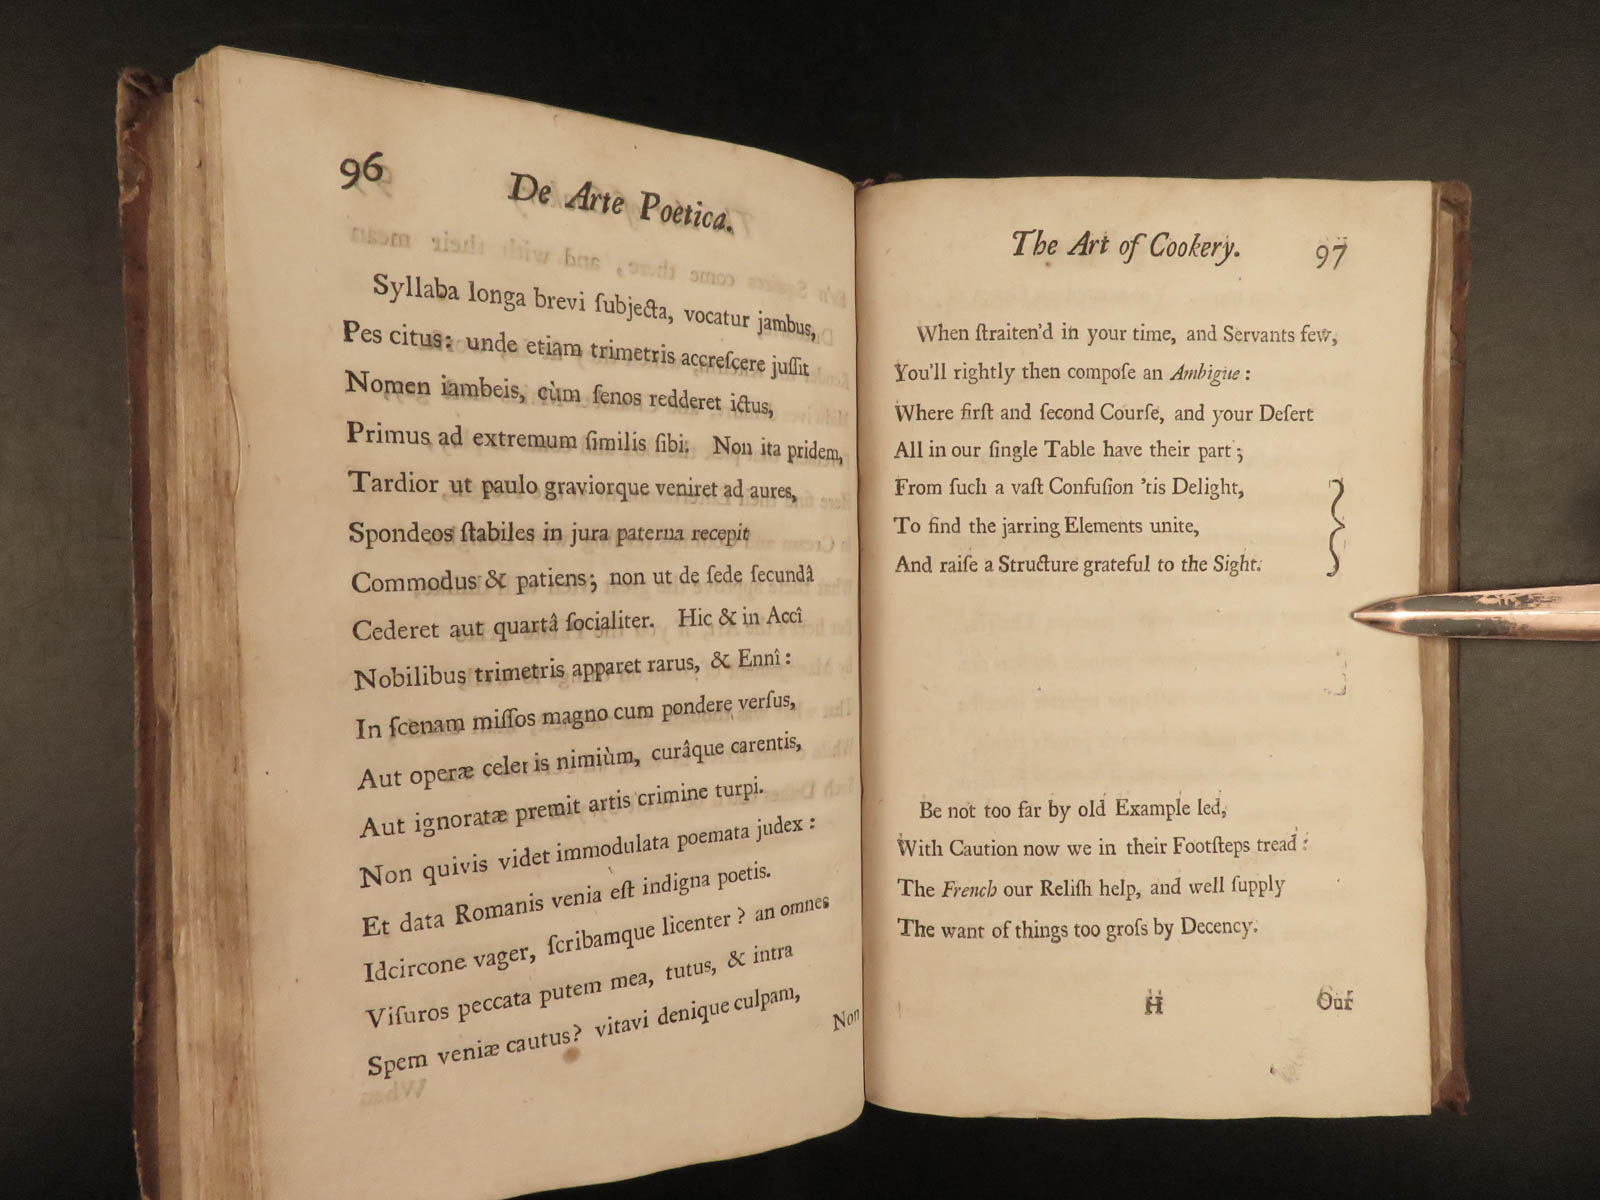 96
De Arte Poetica.
Syllaba longa brevi ſubjecta, vocatur jambus,
Pes citus: unde etiam trimetris accreſcere juſſit
Nomen iambeis, cùm ſenos redderet ictus,
Primus ad extremum ſimilis ſibi. Non ita pridem,
Tardior ut paulo graviorque veniret ad aures,
Spondeos ſtabiles in jura paterna recepit
Commodus & patiens; non ut de ſede ſecundâ
Cederet aut quartâ ſocialiter. Hic & in Accî
Nobilibus trimetris apparet rarus, & Ennî:
In ſcenam miſſos magno cum pondere verſus,
Aut operæ celeris nimiùm, curâque carentis,
Aut ignoratæ premit artis crimine turpi.
Non quivis videt immodulata poemata judex:
Et data Romanis venia eſt indigna poetis.
Idcircone vager, ſcribamque licenter? an omnes
Viſuros peccata putem mea, tutus, & intra
Spem veniæ cautus? vitavi denique culpam,
Non
The Art of Cookery. 97
When ſtraiten'd in your time, and Servants few,
You'll rightly then compoſe an Ambigue:
Where firſt and ſecond Courſe, and your Deſert
All in our ſingle Table have their part;
From ſuch a vaſt Confuſion 'tis Delight,
To find the jarring Elements unite,
And raiſe a Structure grateful to the Sight.
Be not too far by old Example led,
With Caution now we in their Footſteps tread:
The French our Reliſh help, and well ſupply
The want of things too groſs by Decency.
H
Our